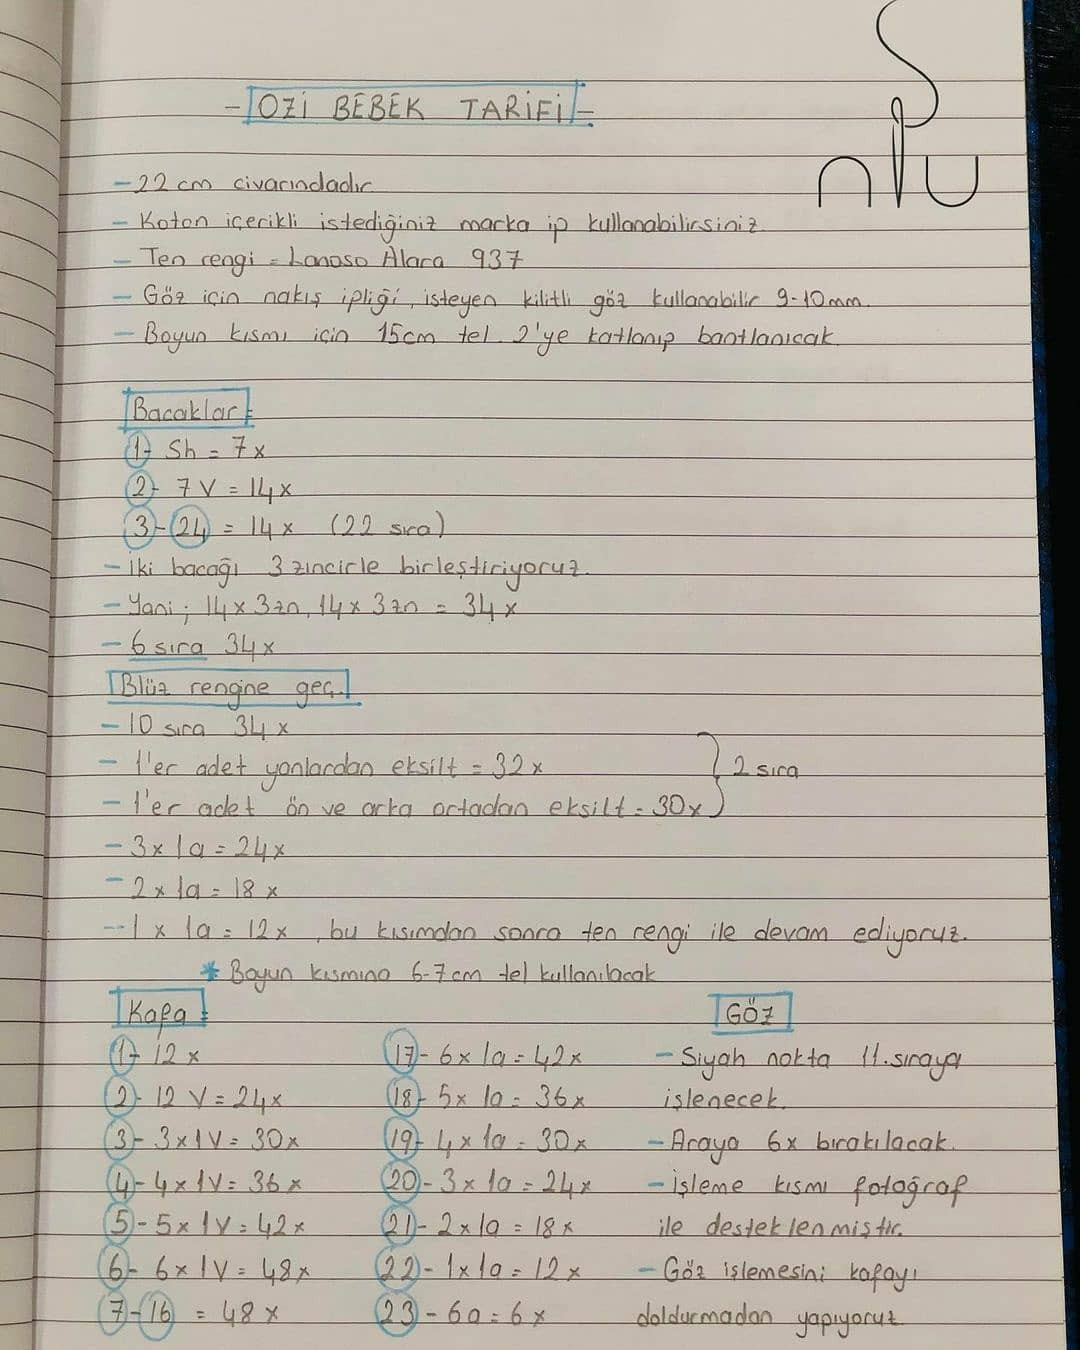 - OZİ BEBEK TARİFİ -
- 22 cm civarındadır
- Koton içerikli istediğiniz marka ip kullanabilirsiniz.
- Ten rengi = Lanoso Alara 937
- Göz için nakış ipliği, isteyen kilitli göz kullanabilir 9-10mm.
- Boyun kısmı için 15cm tel 2'ye katlanıp bantlanıcak.
Bacaklar :
1- Sh = 7x
2- 7V = 14x
3-24 = 14x (22 sıra)
- İki bacağı 3 zincirle birleştiriyoruz.
- Yani ; 14x 3zn, 14x 3zn = 34x
- 6 sıra 34x
Blüz rengine geç.
- 10 sıra 34x
- 1'er adet yanlardan eksilt = 32x
- 1'er adet ön ve arka ortadan eksilt = 30x } 2 sıra
- 3x 1a = 24x
- 2x 1a = 18x
- 1x 1a = 12x , bu kısımdan sonra ten rengi ile devam ediyoruz.
* Boyun kısmına 6-7cm tel kullanılacak
Kafa :
1- 12x
2- 12V = 24x
3- 3x1V = 30x
4- 4x1V = 36x
5- 5x1V = 42x
6- 6x1V = 48x
7-16 = 48x
17- 6x1a = 42x
18- 5x1a = 36x
19- 4x1a = 30x
20- 3x1a = 24x
21- 2x1a = 18x
22- 1x1a = 12x
23- 6a = 6x
GÖZ
- Siyah nokta 11.sıraya
işlenecek.
- Araya 6x bırakılacak.
- İşleme kısmı fotoğraf
ile desteklenmiştir.
- Göz işlemesini kafayı
doldurmadan yapıyoruz.